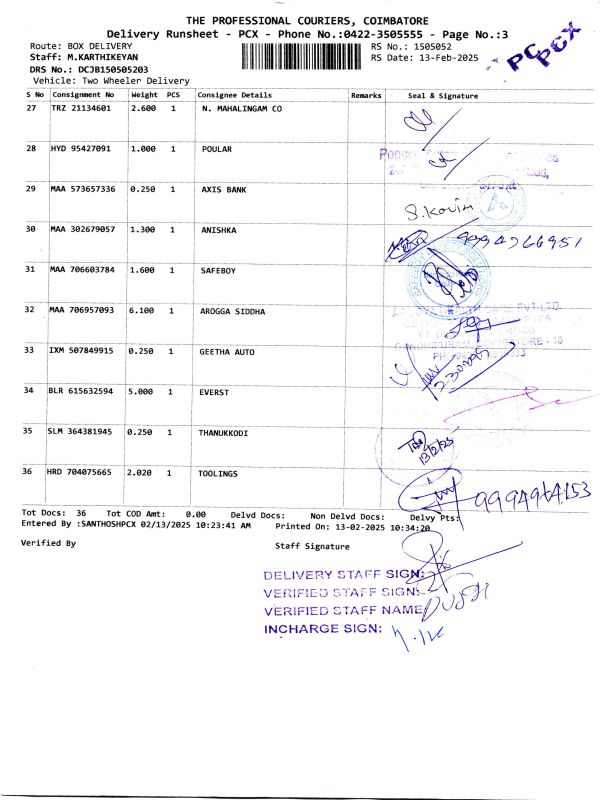 THE PROFESSIONAL COURIERS, COIMBATORE
Delivery Runsheet - PCX - Phone No.:0422-3505555 - Page No.:3
PCX PCX
Route: BOX DELIVERY
RS No.: 1505052
Staff: M.KARTHIKEYAN
RS Date: 13-Feb-2025
DRS No.: DCJB150505203
Vehicle: Two Wheeler Delivery
S No Consignment No Weight PCS Consignee Details Remarks Seal & Signature
27 TRZ 21134601 2.600 1 N. MAHALINGAM CO
28 HYD 95427091 1.000 1 POULAR
29 MAA 573657336 0.250 1 AXIS BANK
30 MAA 302679057 1.300 1 ANISHKA
31 MAA 706603784 1.600 1 SAFEBOY
32 MAA 706957093 6.100 1 AROGGA SIDDHA
33 IXM 507849915 0.250 1 GEETHA AUTO
34 BLR 615632594 5.000 1 EVERST
35 SLM 364381945 0.250 1 THANUKKODI
13/2/25
36 HRD 704075665 2.020 1 TOOLINGS
Tot Docs: 36 Tot COD Amt: 0.00 Delvd Docs: Non Delvd Docs: Delvy Pts:
Entered By :SANTHOSHPCX 02/13/2025 10:23:41 AM Printed On: 13-02-2025 10:34:20
Verified By Staff Signature
DELIVERY STAFF SIGN:
VERIFIED STAFF SIGN:
VERIFIED STAFF NAME
INCHARGE SIGN: